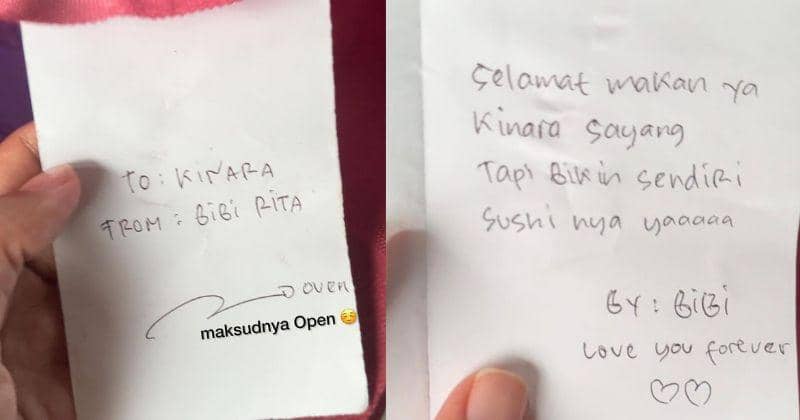 TO : KINARA
FROM : BIBI RITA
oven
maksudnya Open ☺️
Selamat makan ya
Kinara Sayang
Tapi Bikin sendiri
Sushi nya yaaaaa
BY : BIBI
Love you forever
♡♡